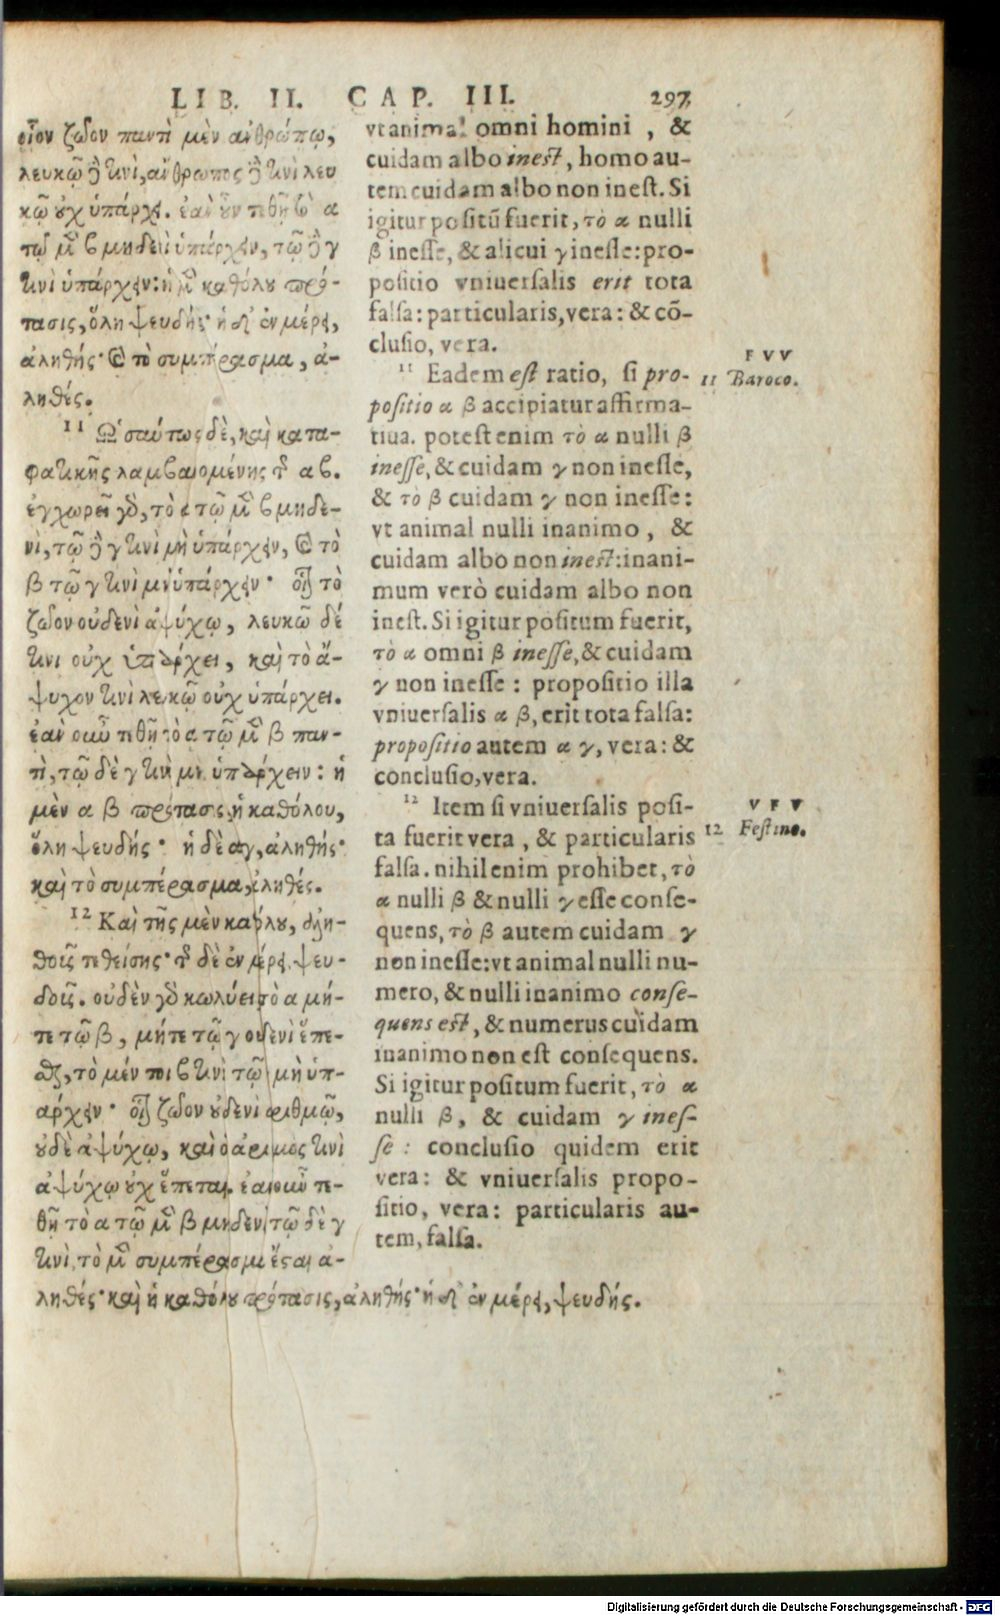 LIB. II. CAP. III. 297
οἷον ζῶον παντὶ μὲν ἀνθρώπῳ,
λευκῷ δὲ τινὶ, ἄνθρωπος δὲ τινὶ λευ
κῷ οὐχ ὑπάρχει. ἐὰν οὖν τεθῇ τὸ α
τῷ μὲν β μηδενὶ ὑπάρχειν, τῷ δὲ γ
τινὶ ὑπάρχειν: ἡ μὲν καθόλου πρό-
τασις, ὅλη ψευδής· ἡ δ' ἐν μέρει,
ἀληθής· καὶ τὸ συμπέρασμα, ἀ-
ληθές.
11 Ὡσαύτως δὲ, καὶ κατα-
φατικῆς λαμβανομένης τῆς αβ.
ἐγχωρεῖ γὰρ, τὸ α τῷ μὲν β μηδε-
νὶ, τῷ δὲ γ τινὶ μὴ ὑπάρχειν, καὶ τὸ
β τῷ γ τινὶ μὴ ὑπάρχειν· οἷον τὸ
ζῶον οὐδενὶ ἀψύχῳ, λευκῷ δέ
τινι οὐχ ὑπάρχει, καὶ τὸ ἄ-
ψυχον τινὶ λευκῷ οὐχ ὑπάρχει.
ἐὰν οὖν τεθῇ τὸ α τῷ μὲν β παν-
τὶ, τῷ δὲ γ τινὶ μὴ ὑπάρχειν: ἡ
μὲν α β πρότασις ἡ καθόλου,
ὅλη ψευδής· ἡ δὲ αγ, ἀληθής·
καὶ τὸ συμπέρασμα, ἀληθές.
12 Καὶ τῆς μὲν καθόλου, ἀλη-
θοῦς τεθείσης· τῆς δὲ ἐν μέρει, ψευ-
δοῦς. οὐδὲν γὰρ κωλύει τὸ α μή-
τε τῷ β, μήτε τῷ γ οὐδενὶ ἕπε-
σθαι, τὸ μέντοι β τινὶ τῷ γ μὴ ὑπ-
άρχειν· οἷον ζῶον οὐδενὶ ἀριθμῷ,
οὐδὲ ἀψύχῳ, καὶ ὁ ἀριθμος τινὶ
ἀψύχῳ οὐχ ἕπεται. ἐὰν οὖν τε-
θῇ τὸ α τῷ μὲν β μηδενὶ, τῷ δὲ γ
τινὶ, τὸ μὲν συμπέρασμα ἔσται ἀ-
ληθές· καὶ ἡ καθόλου πρότασις, ἀληθής· ἡ δ' ἐν μέρει, ψευδής.
vt animal omni homini, &
cuidam albo inest, homo au-
tem cuidam albo non inest. Si
igitur positū fuerit, τὸ α nulli
β inesse, & alicui γ inesse: pro-
positio vniuersalis erit tota
falsa: particularis, vera: & cō-
clusio, vera.
11 Eadem est ratio, si pro-
positio α β accipiatur affirma-
tiua. potest enim τὸ α nulli β
inesse, & cuidam γ non inesse,
& τὸ β cuidam γ non inesse:
vt animal nulli inanimo, &
cuidam albo non inest: inani-
mum verò cuidam albo non
inest. Si igitur positum fuerit,
τὸ α omni β inesse, & cuidam
γ non inesse: propositio illa
vniuersalis α β, erit tota falsa:
propositio autem α γ, vera: &
conclusio, vera.
12 Item si vniuersalis posi-
ta fuerit vera, & particularis
falsa. nihil enim prohibet, τὸ
α nulli β & nulli γ esse conse-
quens, τὸ β autem cuidam γ
non inesse: vt animal nulli nu-
mero, & nulli inanimo conse-
quens est, & numerus cuidam
inanimo non est consequens.
Si igitur positum fuerit, τὸ α
nulli β, & cuidam γ ines-
se: conclusio quidem erit
vera: & vniuersalis propo-
sitio, vera: particularis au-
tem, falsa.
F V V
11 Baroco.
V F V
12 Festino.
Digitalisierung gefördert durch die Deutsche Forschungsgemeinschaft - DFG